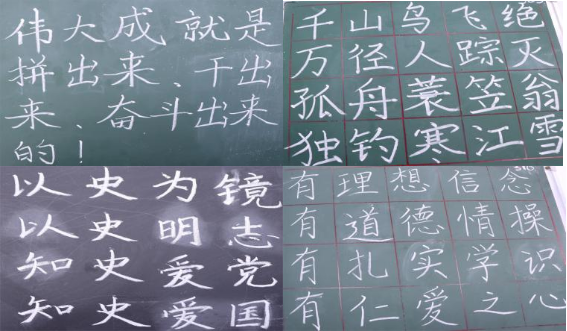 伟大成就是
拼出来、干出
来、奋斗出来
的！
千山鸟飞绝
万径人踪灭
孤舟蓑笠翁
独钓寒江雪
以史为镜
以史明志
知史爱党
知史爱国
有理想信念
有道德情操
有扎实学识
有仁爱之心